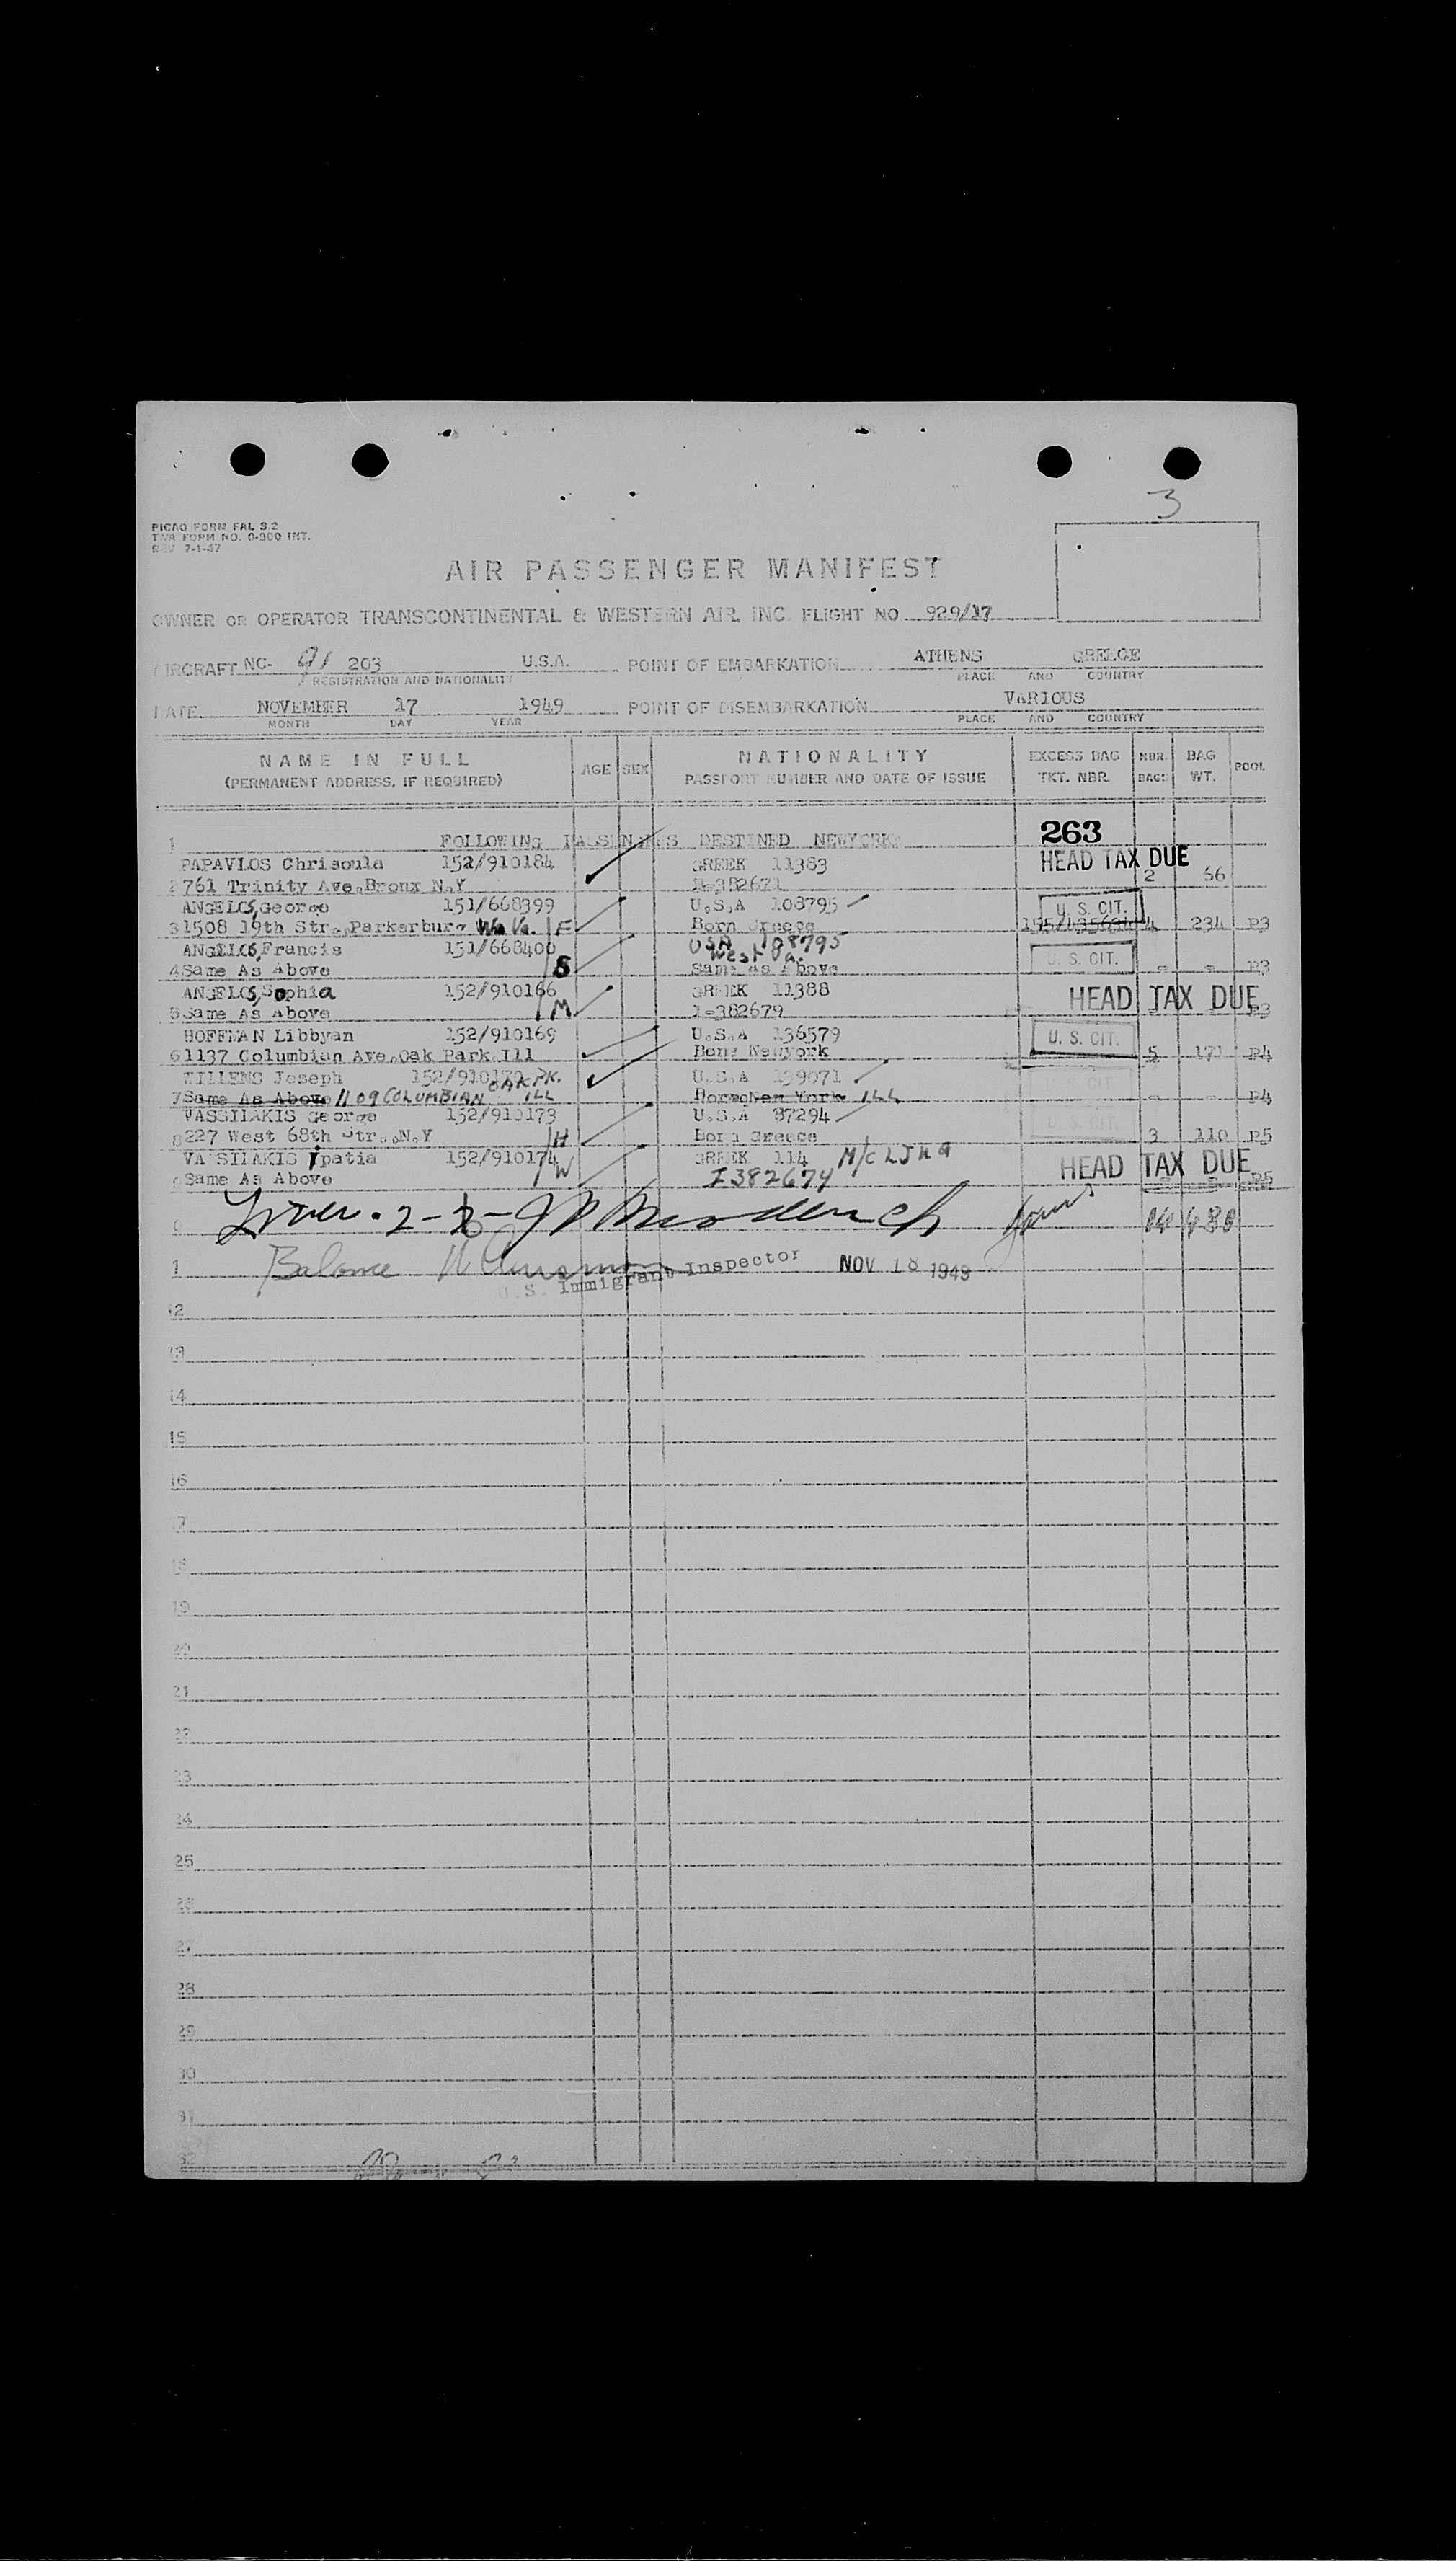 3
PICAO FORM FAL S.2
TWA FORM NO. 0-900 INT.
REV 7-1-47
AIR PASSENGER MANIFEST
OWNER OR OPERATOR TRANSCONTINENTAL & WESTERN AIR, INC. FLIGHT NO 929/17
AIRCRAFT NC- 91 203 U.S.A. POINT OF EMBARKATION ATHENS GREECE
REGISTRATION AND NATIONALITY PLACE AND COUNTRY
DATE NOVEMBER 17 1949 POINT OF DISEMBARKATION VARIOUS
MONTH DAY YEAR PLACE AND COUNTRY
NAME IN FULL AGE SEX NATIONALITY EXCESS BAG NBR. BAG POOL
(PERMANENT ADDRESS, IF REQUIRED) PASSPORT NUMBER AND DATE OF ISSUE TKT. NBR. BAGS WT.
263
1 FOLLOWING PASSENGERS DESTINED NEWYORK
PAPAVLOS Chrisoula 152/910184 GREEK 11383 HEAD TAX DUE
2 761 Trinity Ave.Bronx N.Y 2 66
ANGELOS, George 151/668399 U.S.A 108795 U. S. CIT.
3 1508 19th Str., Parkerburg Wa Va. F Born Greece 4 234 P3
ANGELOS, Francis 151/668400 USA 108795 U. S. CIT.
West Va.
4 Same As Above S Same As Above - - P3
ANGELOS, Sophia 152/910166 GREEK 11388 HEAD TAX DUE
5 Same As Above M I-382679 P3
HOFFMAN Libbyan 152/910169 U.S.A 136579 U. S. CIT.
6 1137 Columbian Ave.,Oak Park Ill Born Newyork 5 171 P4
WILLENS Joseph 152/910170 OAK PK. U.S.A 139071 CIT
7 Same As Above 1109 COLUMBIAN ILL Born New York ILL P4
VASSILAKIS George 152/910173 U.S.A 87294 U. S. CIT.
8 227 West 68th Str.,N.Y H Born Greece 3 110 P5
VASSILAKIS Ipatia 152/910174 GREEK 114 HEAD TAX DUE
9 Same As Above W I382674 P5
Balance
U.S. Immigrant Inspector NOV 18 1949
12
13
14
15
16
17
18
19
20
21
22
23
24
25
26
27
28
29
30
31
32